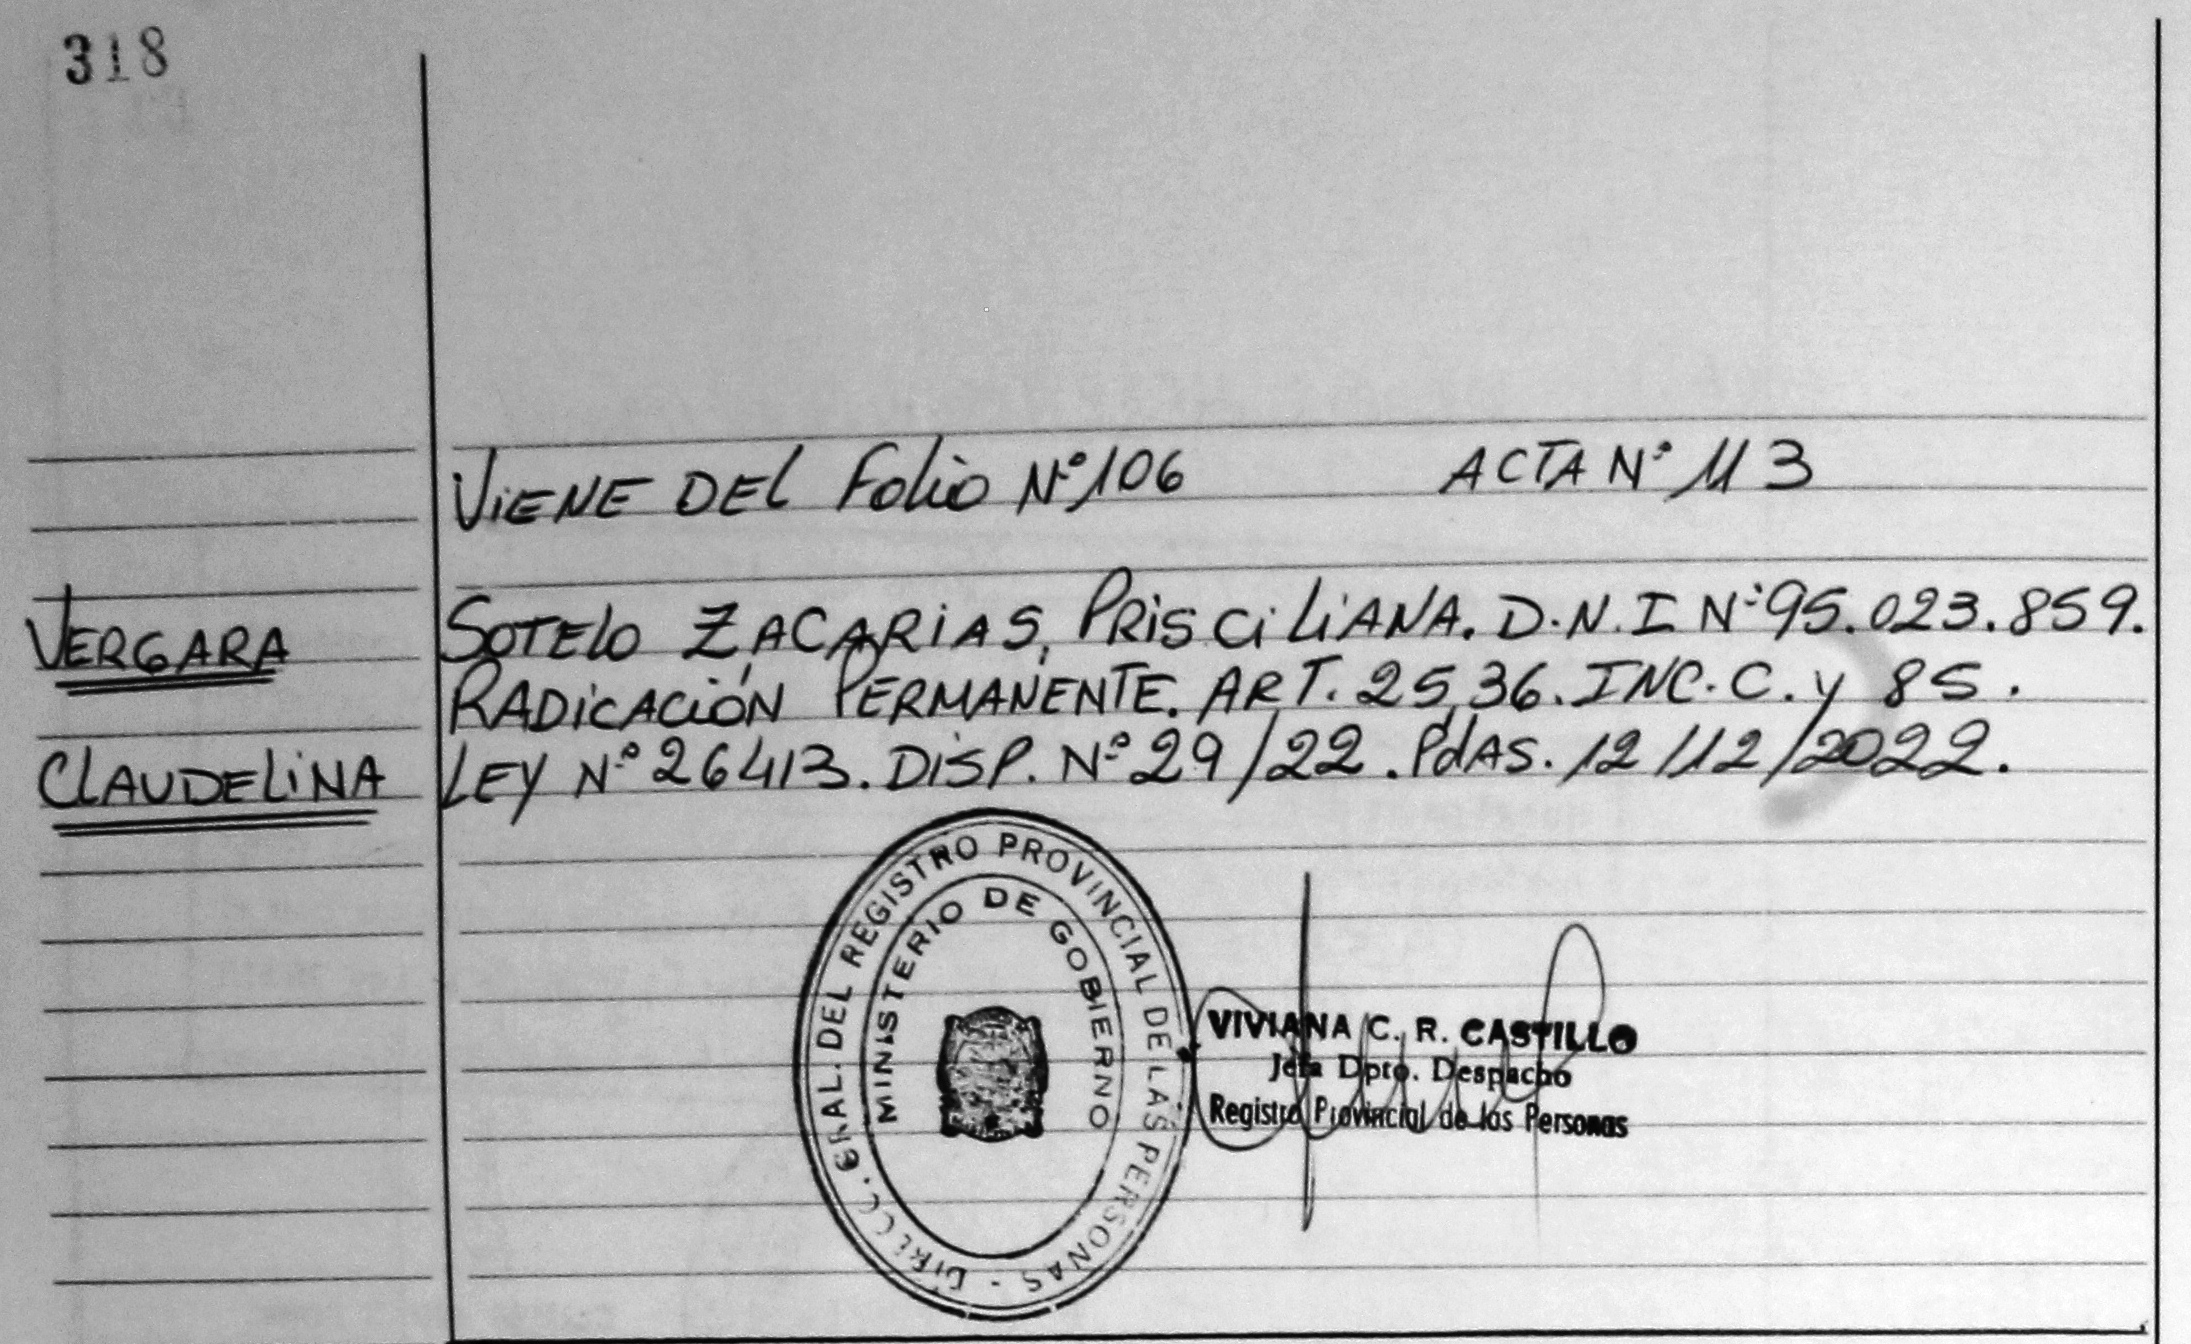 318
VIENE DEL Folio Nº 106 ACTA Nº 113
VERGARA
CLAUDELINA
SOTELO ZACARIAS, PRISCILIANA. D.N.I Nº 95.023.859.
RADICACIÓN PERMANENTE. ART. 25,36. INC. C. y 85.
LEY Nº 26413. DISP. Nº 29/22. PdAS. 12/12/2022.
DIRECC. GRAL. DEL REGISTRO PROVINCIAL DE LAS PERSONAS -
MINISTERIO DE GOBIERNO
VIVIANA C. R. CASTILLO
Jefa Dpto. Despacho
Registro Provincial de las Personas